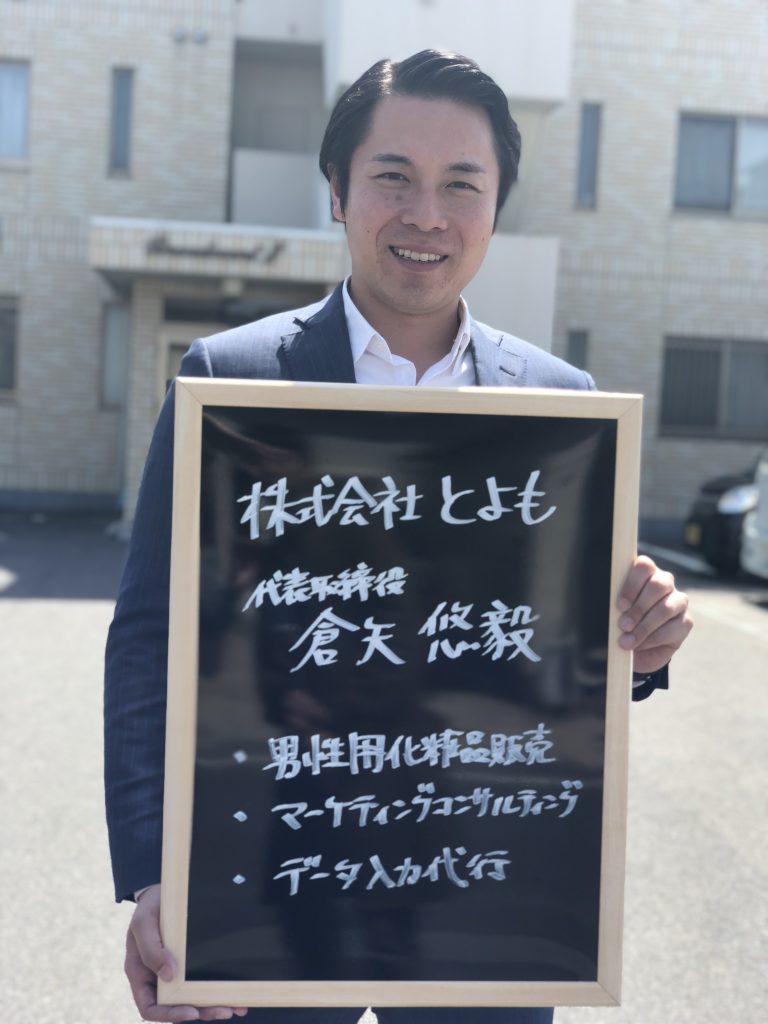 株式会社 とよも
代表取締役
倉矢 悠毅
・男性用化粧品販売
・マーケティングコンサルティング
・データ入力代行